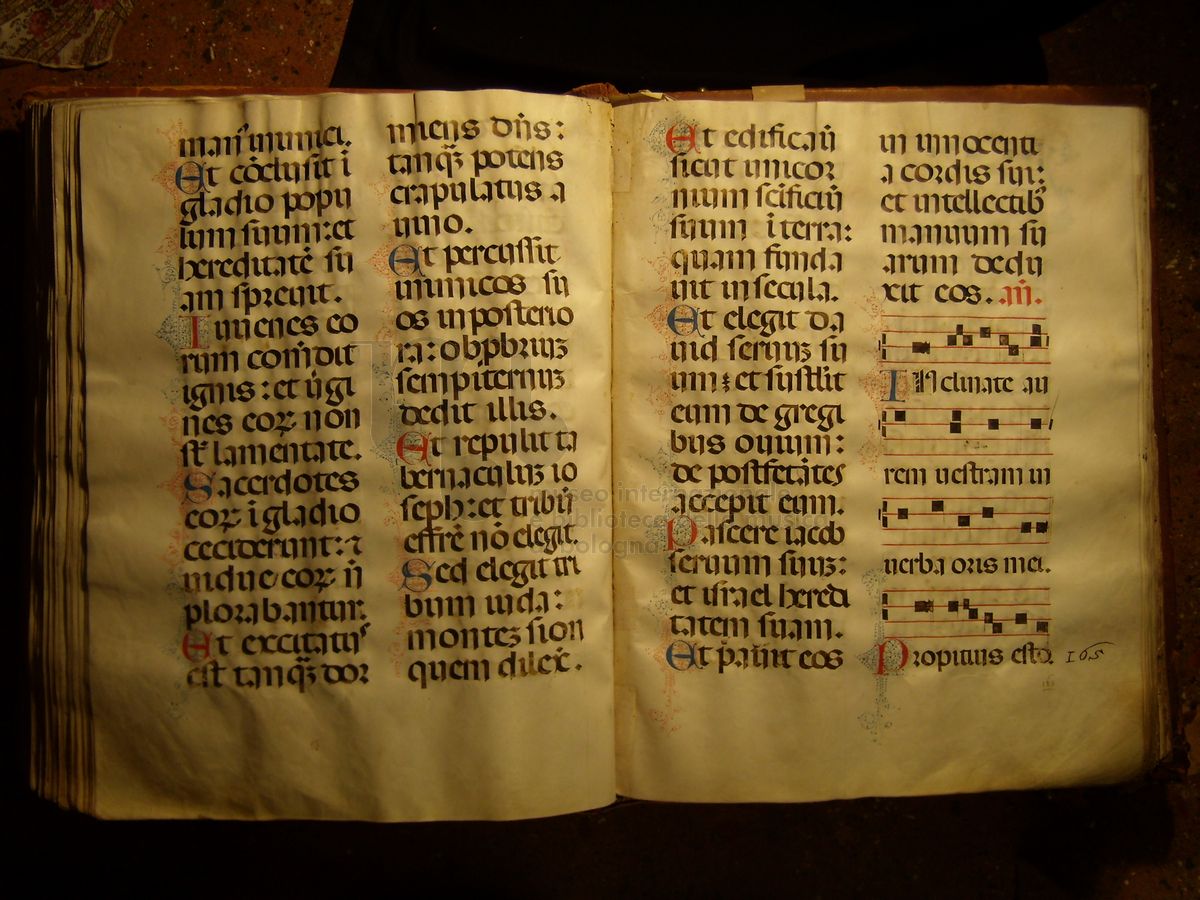 man' inimici.
Et cōclusit ī
gladio popu
lum suum: et
hereditatē su
am spreuit.
Iuuenes eo
rum com̄dit
ignis: et ūgi
nes eoꝝ non
sūt lamentate.
Sacerdotes
eoꝝ ī gladio
ceciderunt: ⁊
uidue eoꝝ ñ
plorabantur.
Et excitatus
est tanqꝫ dor
miens dñs:
tanqꝫ potens
crapulatus a
uino.
Et percussit
inimicos su
os in posterio
ra: obpbriuꝫ
sempiternuꝫ
dedit illis.
Et repulit ta
bernaculuꝫ io
seph: et tribū
effrē nō elegit.
Sed elegit tri
bum iuda:
monteꝫ sion
quem dilex̄.
Et edificaū
sicut unicor
nium scificiū
suum ī terra:
quam funda
uit in secula.
Et elegit da
uid seruuꝫ su
um: et sustlit
eum de gregi
bus ouium:
de postfetātes
accepit eum.
Pascere iacob
seruum suuꝫ:
et israel heredi
tatem suam.
Et pauit eos
in innocenti
a cordis sui:
et intellectibꝰ
manuum su
arum dedu
xit eos. añ.
Inclinate au
rem uestram in
uerba oris mei.
Propitius esto.
165
museo internazionale
e biblioteca della musica
di bologna